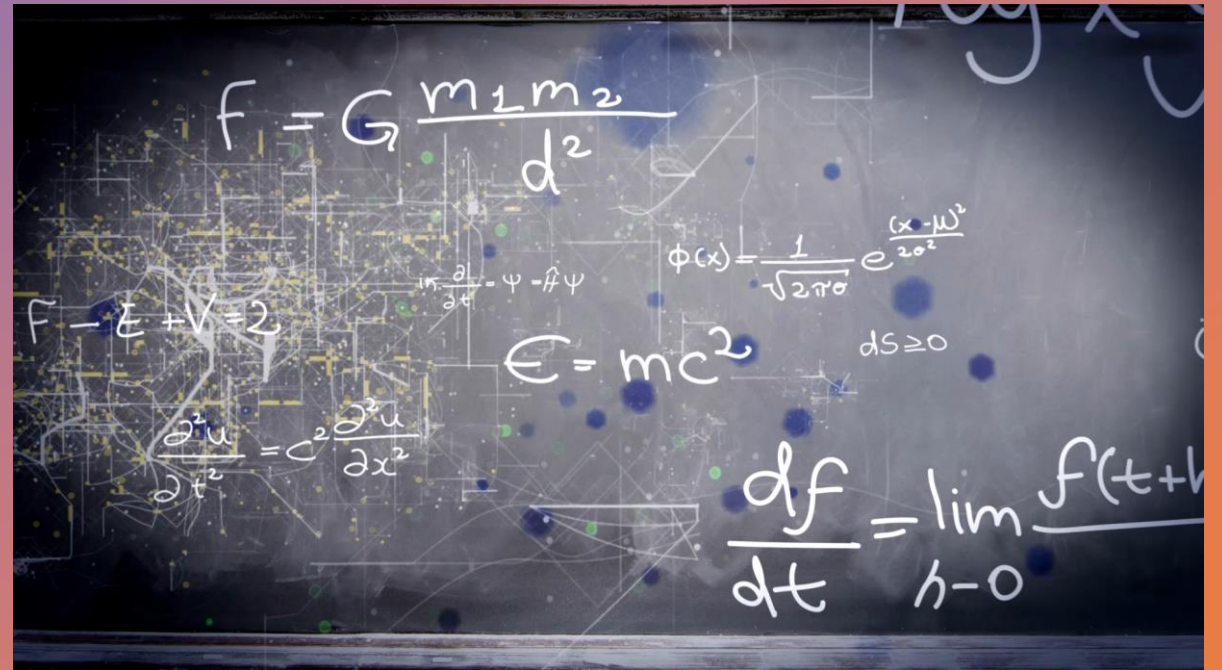 F = G m1m2 / d²
ϕ(x) = 1 / √2πσ e^(x-μ)² / 2σ²
iħ ∂/∂t = Ψ = ĤΨ
F - E + V = 2
E = mc²
dS ≥ 0
∂²u / ∂t² = c² ∂²u / ∂x²
df / dt = lim h-0 f(t+h